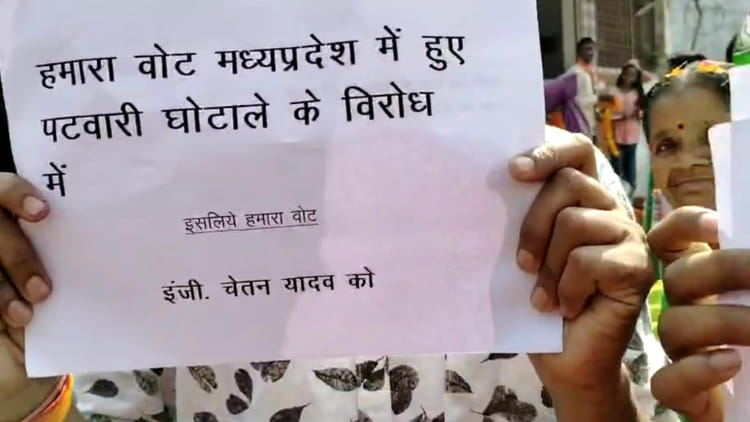 हमारा वोट मध्यप्रदेश में हुए
पटवारी घोटाले के विरोध
में
इसलिये हमारा वोट
इंजी. चेतन यादव को